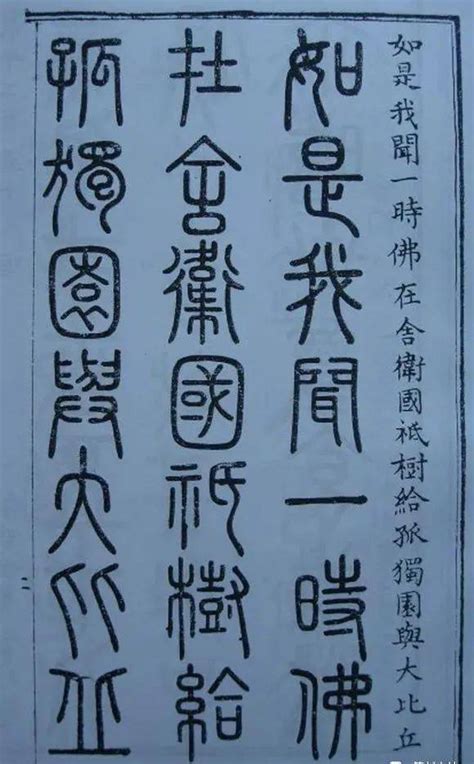 如是我聞一時佛在舍衛國祇樹給孤獨園與大比丘
如是我聞一時佛
在舍衛國祇樹給
孤獨園與大比丘
二